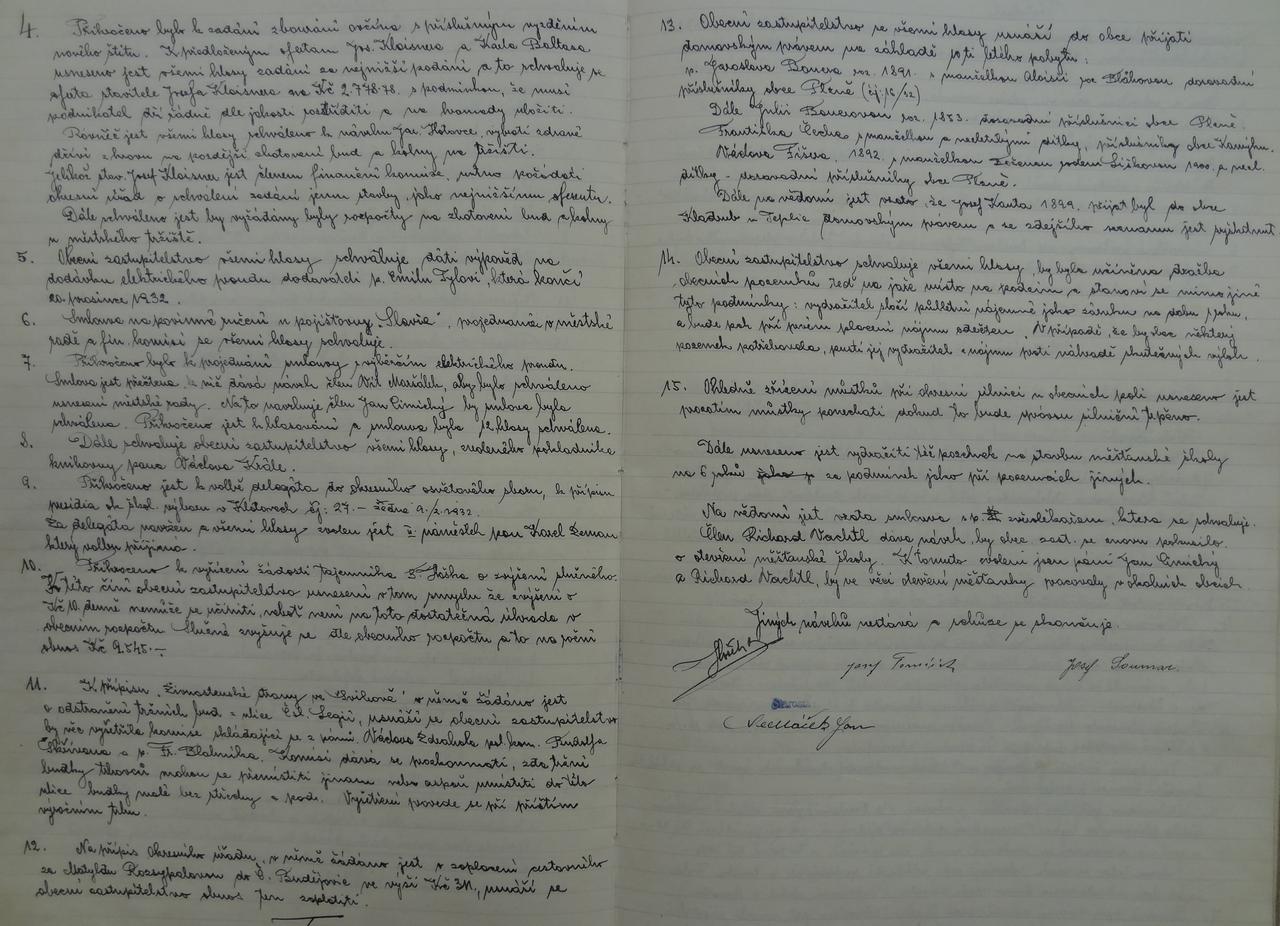 4. Přikročeno bylo k zadání zbourání ovčína s příslušným vyzděním
nového štítu. K předloženým ofertam Jos. Kloisnera a Karla Baltasa
usneseno jest všemi hlasy zadání za nejnižší podání a to schvaluje se
oferta stavitele Josefa Kloisnera na Kč 2.778.78. s podmínkou, že musí
podnikatel dří řádně dle jakosti roztříditi a na hromady uložiti.
Rovněž jest všemi hlasy schváleno k návrhu Jar. Hotovce, vybrati zdravé
dříví z krovu na pozdější zhotovení bud a kolny na tržišti.
Jelikož stav. Josef Kloisner jest členem finanční komise, nutno požádati
okresní úřad o schválení zadání jemu stavby, jako nejnižšímu oferentu.
Dále schváleno jest by vyžádány byly rozpočty na zhotovení bud a kolny
u městského tržiště.
5. Obecní zastupitelstvo všemi hlasy schvaluje dáti výpověd na
dodávku elektrického proudu dodavateli p. Emilu Tylovi, která končí
20. prosince 1932.
6. Smlouva na povinné ručení u pojišťovny "Slavia", projednaná v městské
radě a fin. komisi se všemi hlasy schvaluje.
7. Přikročeno bylo k projednání smlouvy s výběrčím elektrického proudu.
Smlouva jest přečtena, k níž dává návrh člen Vil. Maršálek, aby bylo schváleno
usnesení městské rady. Na to navrhuje člen Jan Cimický by smlouva byla
schválena. Přikročeno jest k hlasování a smlouva byla 12 hlasy schválena.
8. Dále schvaluje obecní zastupitelstvo všemi hlasy, zvoleného pokladníka
knihovny pana Václava Krále.
9. Přikročeno jest k volbě delegáta do okresního osvětového sboru, k přípisu
presidia ok. škol. výboru v Klatovech čj: 27. – ze dne 9./2. 1932.
Za delegáta navržen a všemi hlasy zvolen jest I. náměstek pan Karel Zeman
který volbu přijímá.
10. Přikročeno k vyřízení žádosti tajemníka F. Háška o zvýšení služného.
K této činí obecní zastupitelstvo usnesení v tom smyslu že zvýšení o
Kč 10, denně nemůže se učiniti, neboť není na toto dostatečná úhrada v
obecním rozpočtu. Služné zvyšuje se dle obecního rozpočtu a to na roční
obnos Kč 9.545.–
11. K přípisu "Živnostenské strany ve Švihově" v němž žádáno jest
o odstranění tržních bud z ulice Čsl. Legií, usnáší se obecní zastupitelstvo
by věc vyšetřila komise skládající se z pánů: Václava Zdrahala pol. kom. Rudolfa
Skřivana a p. Fr. Blahníka. Komisi dává se prozkoumati, zda tržní
budky trhovců mohou se přemístiti jinam nebo aspoň umístiti do této
ulice budky malé bez střechy a pod. Vyšetření provede se při příštím
výročním trhu.
12. Na přípis Okresního úřadu, v němž žádáno jest o zaplacení cestovného
za Matyldu Rozsypalovou do Č. Budějovic ve výši Kč 311, usnáší se
obecní zastupitelstvo obnos ten zaplatiti.
13. Obecní zastupitelstvo se všemi hlasy usnáší do obce přijati
domovským právem na základě 10ti letého pobytu:
p. Jaroslava Bauera roz. 1891. s manželkou Aloisií roz Bláhovou dosavadní
příslušníky obce Plzeně (čj. 16/32)
Dále Julii Bauerovou roz. 1853. dosavadní příslušnici obce Plzeně.
Františka Čecha s manželkou a nezletilými dítky, příslušníky obce Kamýku.
Václava Fišera, 1892. s manželkou Boženou rodem Liškovou 1900. a nezl.
dítky – dosavadní příslušníky obce Plzeně.
Dále na vědomí jest vzato, že Josef Kauta 1899. přijat byl do obce
Kladrub u Teplic domovským právem a ze zdejšího seznamu jest vyškrtnut.
14. Obecní zastupitelstvo schvaluje všemi hlasy, by byla učiněna dražba
obecních pozemků teď na jaře místo na podzim a stanoví se mimo jiné
tyto podmínky: vydražitel složí půlletní nájemné jako záruku na dobu 1 roku,
a bude pak při prvém placení nájmu odečten. V případě, že by obec některý
pozemek potřebovala, pustí jej vydražitel z nájmu proti náhradě skutečných výloh.
15. Ohledně zřízení můstků při okresní silnici u obecních polí usneseno jest
prozatím můstky ponechati pokud to bude správou silniční trpěno.
Dále usneseno jest vydražiti též pozemek na stavbu měšťanské školy
na 6 roků za podmínek jako při pozemcích jiných.
Na vědomí jest vzata smlouva s p. zvěrolékařem, která se schvaluje.
Člen Richard Vachtl dává návrh, by obec. zast. se znovu pokusilo
o otevření měšťanské školy. K tomuto zvoleni jsou páni Jan Cimický
a Richard Vachtl, by ve věci otevření měšťanky pracovaly v okolních obcích.
Jiných návrhů nestává a schůze se skončuje.
Josef Tomášek Josef Soumar.
Sedláček Jan